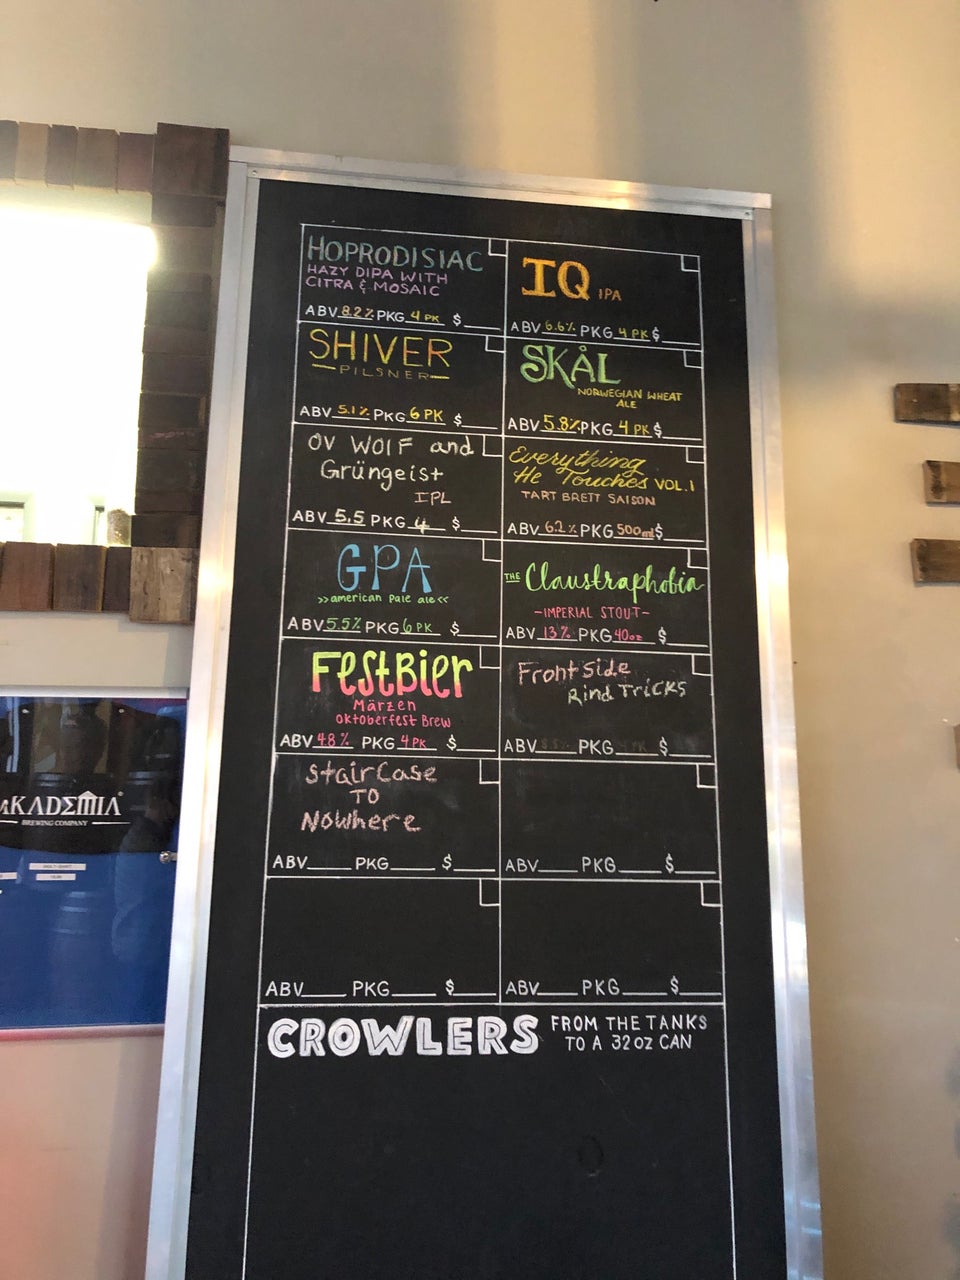 HOPRODISIAC
HAZY DIPA WITH
CITRA & MOSAIC
ABV 8.2% PKG 4 PK $
IQ IPA
ABV 6.6% PKG 4 PK $
SHIVER
PILSNER
ABV 5.1% PKG 6 PK $
SKÅL
NORWEGIAN WHEAT
ALE
ABV 5.8% PKG 4 PK $
OV WOLF and
Grüngeist
IPL
ABV 5.5 PKG 4 $
Everything
He Touches VOL.1
TART BRETT SAISON
ABV 6.2% PKG 500ml $
GPA
>>american pale ale<<
ABV 5.5% PKG 6 PK $
THE Claustraphobia
-IMPERIAL STOUT-
ABV 13% PKG 40oz $
FestBier
Märzen
Oktoberfest Brew
ABV 4.8% PKG 4 PK $
Front Side
Rind Tricks
ABV PKG $
StairCase
TO
Nowhere
ABV PKG $
ABV PKG $
ABV PKG $
ABV PKG $
CROWLERS FROM THE TANKS
TO A 32 OZ CAN
AKADEMIA
BREWING COMPANY